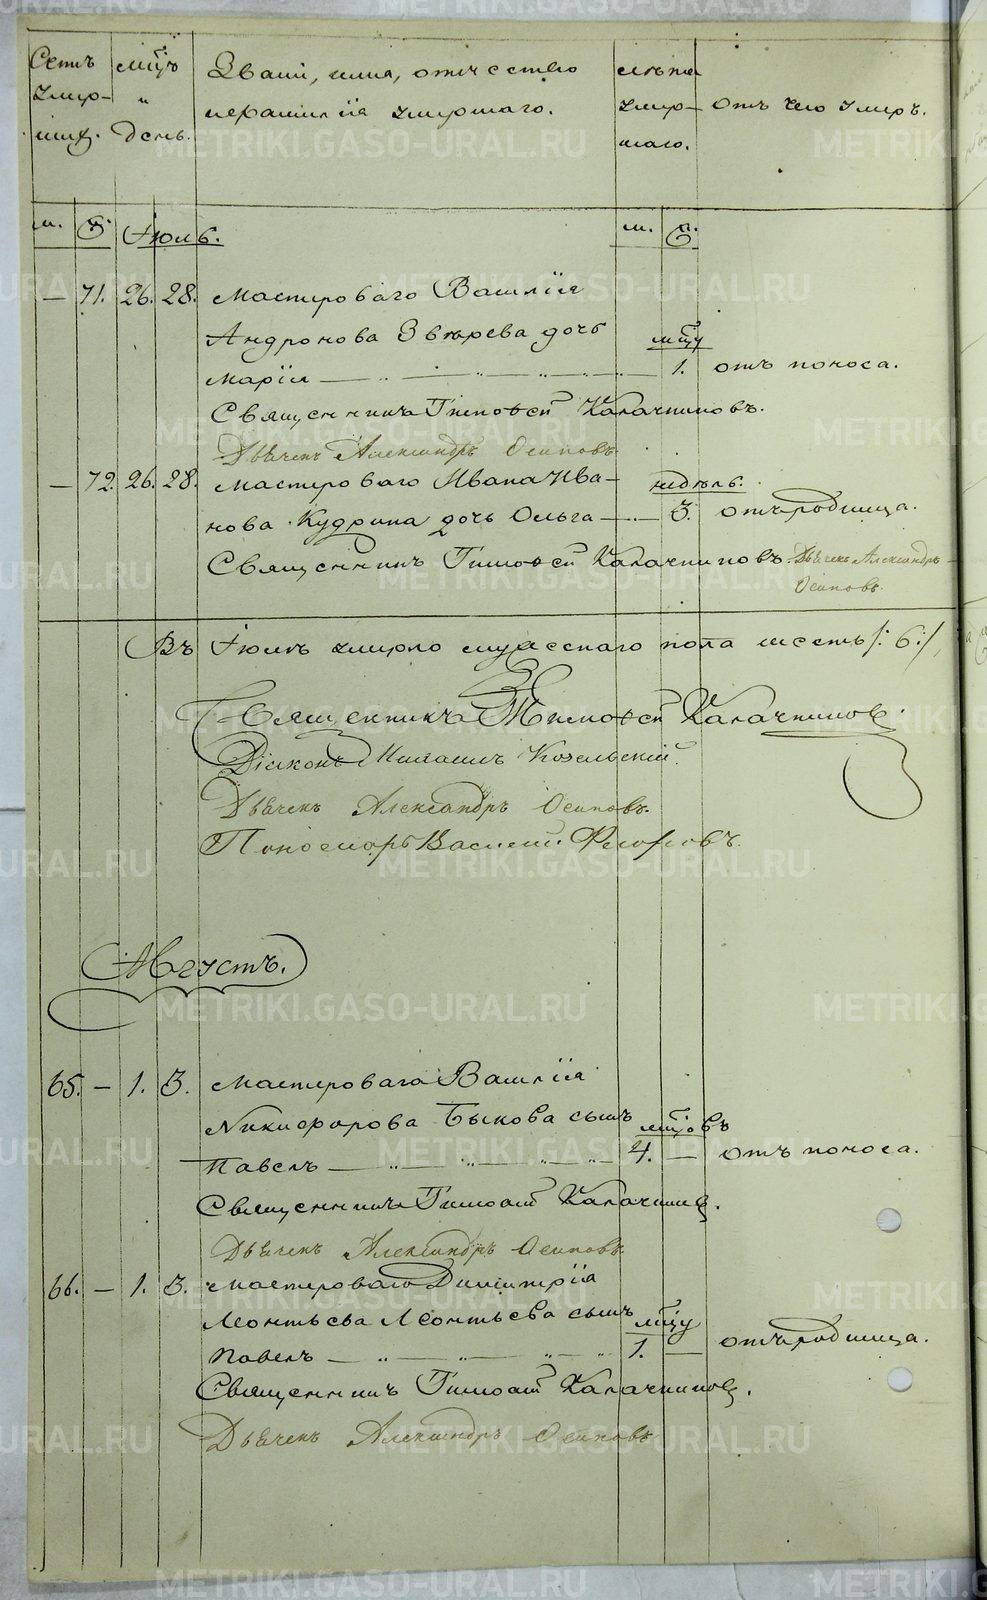 Счетъ мсцъ Званіе, имя, отчество лѣта
умер- и и фамилія умершаго. умер- Отъ чего умеръ.
шихъ. день. шаго.
м. ж. Іюль. м. ж.
— 71. 26. 28. Мастероваго Василія
Андронова Звѣрева дочь мсцу
Марія — 1. отъ поноса.
Священникъ Тимоѳей Калачниковъ.
Дьячекъ Александръ Осиповъ
— 72. 26. 28. Мастероваго Ивана Ива- недѣль.
нова Кудрина дочь Ольга — 3. отъ родимца.
Священникъ Тимоѳей Калачниковъ. Дьячекъ Александръ
Осиповъ.
Въ Іюлѣ умерло мужескаго пола шесть /: 6 :/
Священникъ Тимоѳей Калачниковъ.
Діаконъ Козельскій.
Дьячекъ Александръ Осиповъ.
Пономарь Василій Ѳеофиловъ.
Августъ.
65. — 1. 3. Мастероваго Василія
Никифорова Быкова сынъ мсцовъ
Павелъ — 4. — отъ поноса.
Священникъ Тимоѳей Калачниковъ.
Дьячекъ Александръ Осиповъ
66. — 1. 3. Мастероваго Димитрія
Леонтьева Леонтьева сынъ мсцу
Павелъ — 1. — отъ родимца.
Священникъ Тимоѳей Калачниковъ.
Дьячекъ Александръ Осиповъ
METRIKI.GASO-URAL.RU